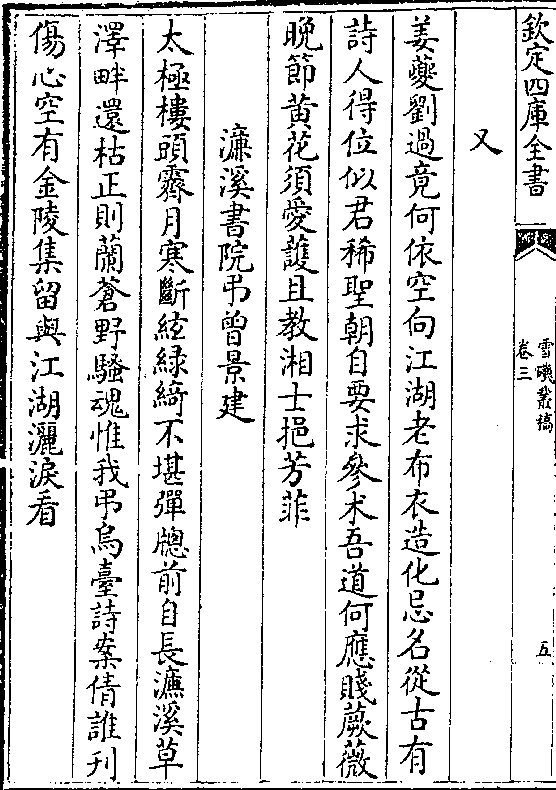 欽定四庫全書
雪磯叢稿
卷三
五
又
姜夔劉過竟何依空向江湖老布衣造化忌名從古有
詩人得位似君稀聖朝自要求參术吾道何應賤蕨薇
晚節黄花須愛䕶且教湘士挹芳菲
濂溪書院弔曾景建
太極樓頭霽月寒斷絃緑綺不堪彈牕前自長濂溪草
澤畔還枯正則蘭蒼野騷魂惟我弔烏臺詩案倩誰刋
傷心空有金陵集留與江湖灑淚看